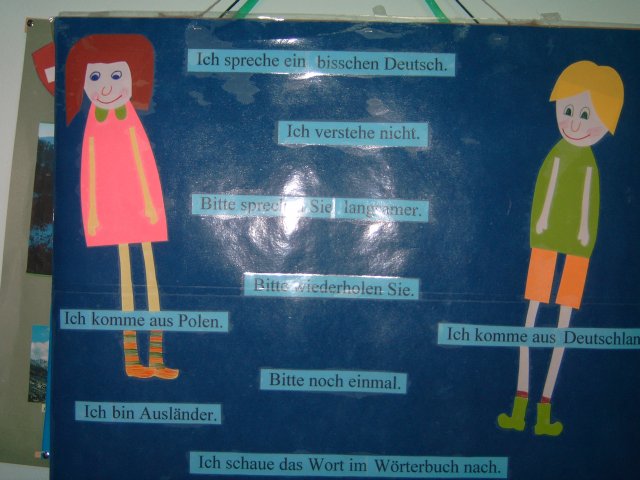 Ich spreche ein bisschen Deutsch.
Ich verstehe nicht.
Bitte sprechen Sie langsamer.
Bitte wiederholen Sie.
Ich komme aus Polen.
Ich komme aus Deutschlan
Bitte noch einmal.
Ich bin Ausländer.
Ich schaue das Wort im Wörterbuch nach.